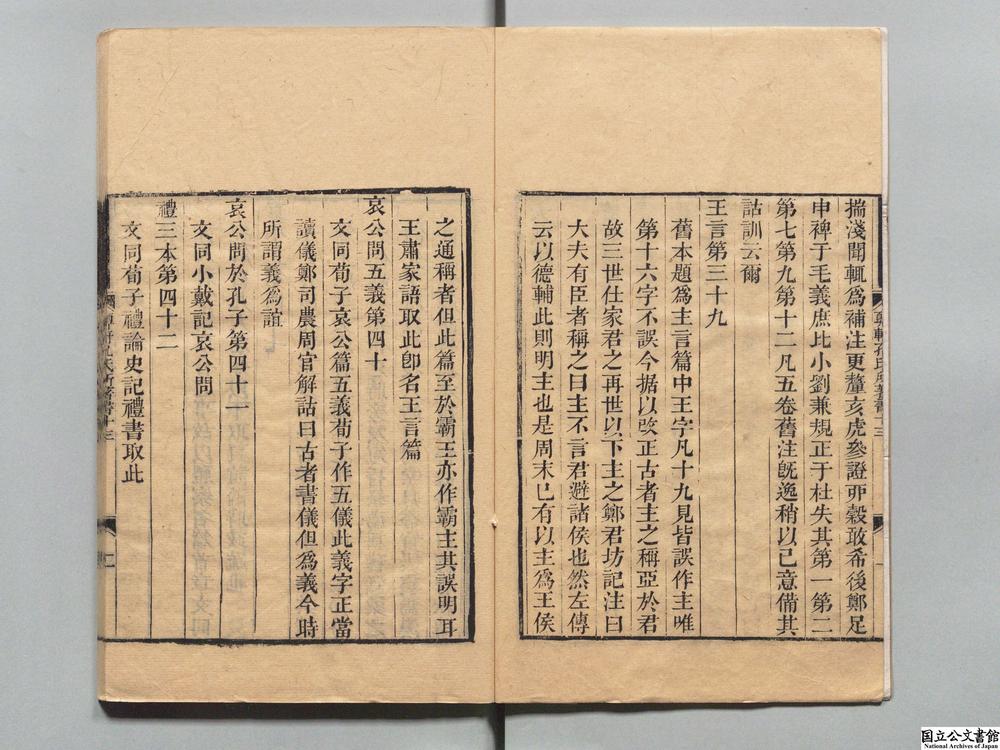 揣淺聞輒爲補注更釐亥虎參證丣穀敢希後鄭足
申禆于毛義庶比小劉兼規正于杜失其第一第二
第七第九第十二凡五卷舊注旣逸稍以己意備其
詁訓云爾
王言第三十九
舊本題爲主言篇中王字凡十九見皆誤作主唯
第十六字不誤今据以改正古者主之稱亞於君
故三世仕家君之再世以下主之鄭君坊記注曰
大夫有臣者稱之曰主不言君避諸侯也然左傳
云以德輔此則明主也是周末已有以主爲王侯
之通稱者但此篇至於霸王亦作霸主其誤明耳
王肅家語取此卽名王言篇
哀公問五義第四十
文同荀子哀公篇五義荀子作五儀此義字正當
讀儀鄭司農周官解詁曰古者書儀但爲義今時
所謂義爲誼
哀公問於孔子第四十一
文同小戴記哀公問
禮三本第四十二
文同荀子禮論史記禮書取此
二
国立公文書館
National Archives of Japan